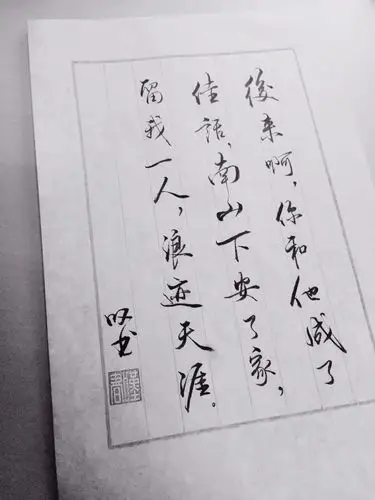 後来啊，你和他成了
佳話，南山下安了家，
留我一人，浪迹天涯。